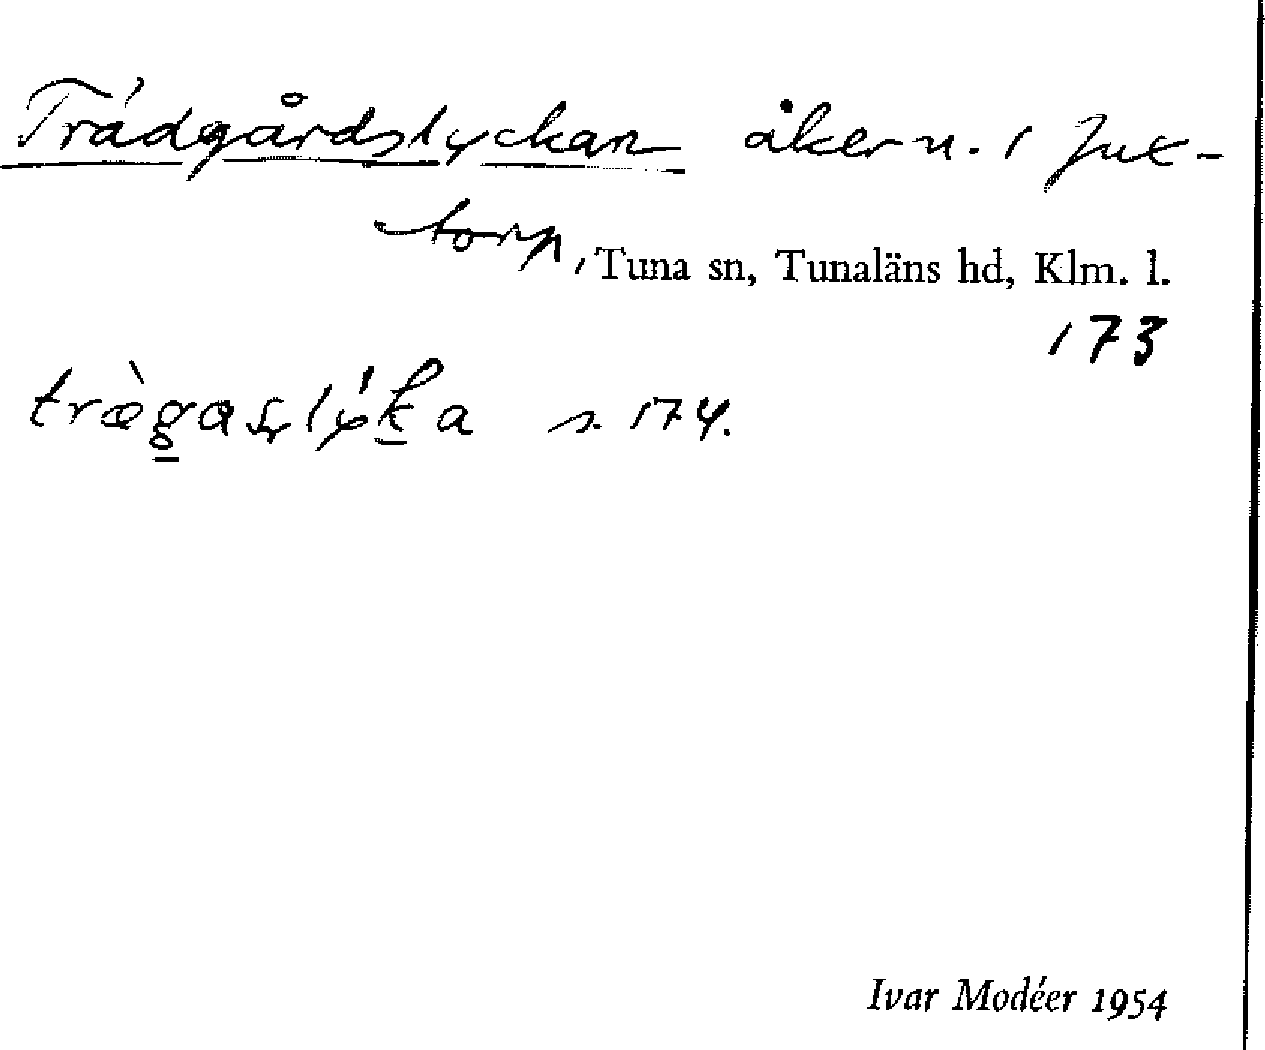 Trädgårdslyckan åkern. i Jux-
torp, Tuna sn, Tunaläns hd, Klm. l.
173
træ̀gaṣlýka s. 174.
Ivar Modéer 1954